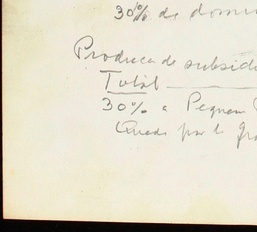 30% de domi
Produca de subsid
Total
30% a Pequen
Queda por l gra